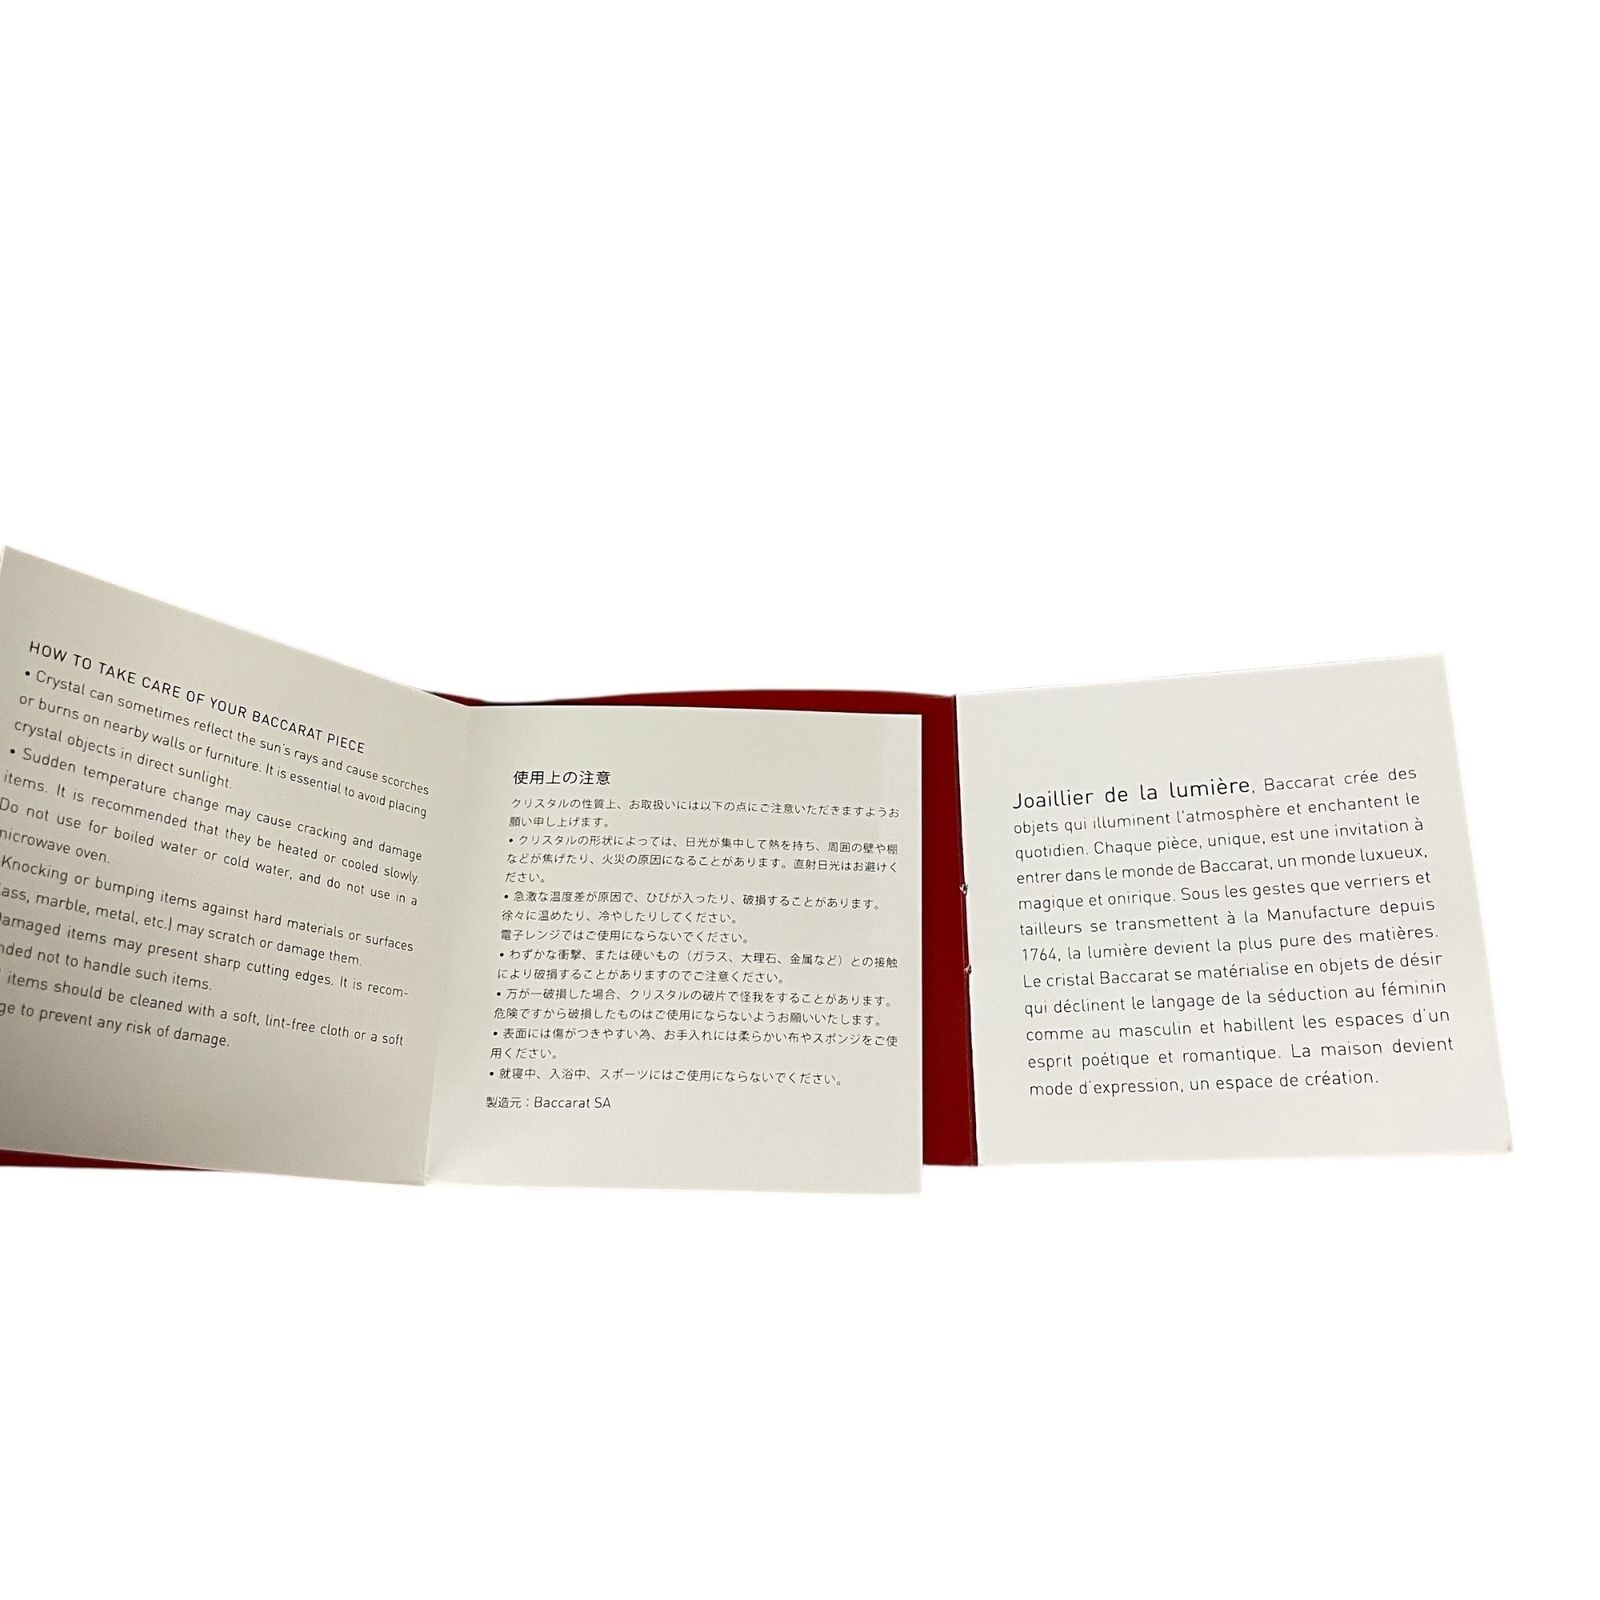 HOW TO TAKE CARE OF YOUR BACCARAT PIECE
• Crystal can sometimes reflect the sun's rays and cause scorches
or burns on nearby walls or furniture. It is essential to avoid placing
crystal objects in direct sunlight.
• Sudden temperature change may cause cracking and damage
items. It is recommended that they be heated or cooled slowly.
Do not use for boiled water or cold water, and do not use in a
microwave oven.
Knocking or bumping items against hard materials or surfaces
marble, metal, etc.) may scratch or damage them.
Damaged items may present sharp cutting edges. It is recom-
not to handle such items.
items should be cleaned with a soft, lint-free cloth or a soft
to prevent any risk of damage.
使用上の注意
クリスタルの性質上、お取扱いには以下の点にご注意いただきますようお
願い申し上げます。
• クリスタルの形状によっては、日光が集中して熱を持ち、周囲の壁や棚
などが焦げたり、火災の原因になることがあります。直射日光はお避けく
ださい。
• 急激な温度差が原因で、ひびが入ったり、破損することがあります。
徐々に温めたり、冷やしたりしてください。
電子レンジではご使用にならないでください。
• わずかな衝撃、または硬いもの（ガラス、大理石、金属など）との接触
により破損することがありますのでご注意ください。
• 万が一破損した場合、クリスタルの破片で怪我をすることがあります。
危険ですから破損したものはご使用にならないようお願いいたします。
• 表面には傷がつきやすい為、お手入れには柔らかい布やスポンジをご使
用ください。
• 就寝中、入浴中、スポーツにはご使用にならないでください。
製造元：Baccarat SA
Joaillier de la lumière, Baccarat crée des
objets qui illuminent l'atmosphère et enchantent le
quotidien. Chaque pièce, unique, est une invitation à
entrer dans le monde de Baccarat, un monde luxueux,
magique et onirique. Sous les gestes que verriers et
tailleurs se transmettent à la Manufacture depuis
1764, la lumière devient la plus pure des matières.
Le cristal Baccarat se matérialise en objets de désir
qui déclinent le langage de la séduction au féminin
comme au masculin et habillent les espaces d'un
esprit poétique et romantique. La maison devient
mode d'expression, un espace de création.